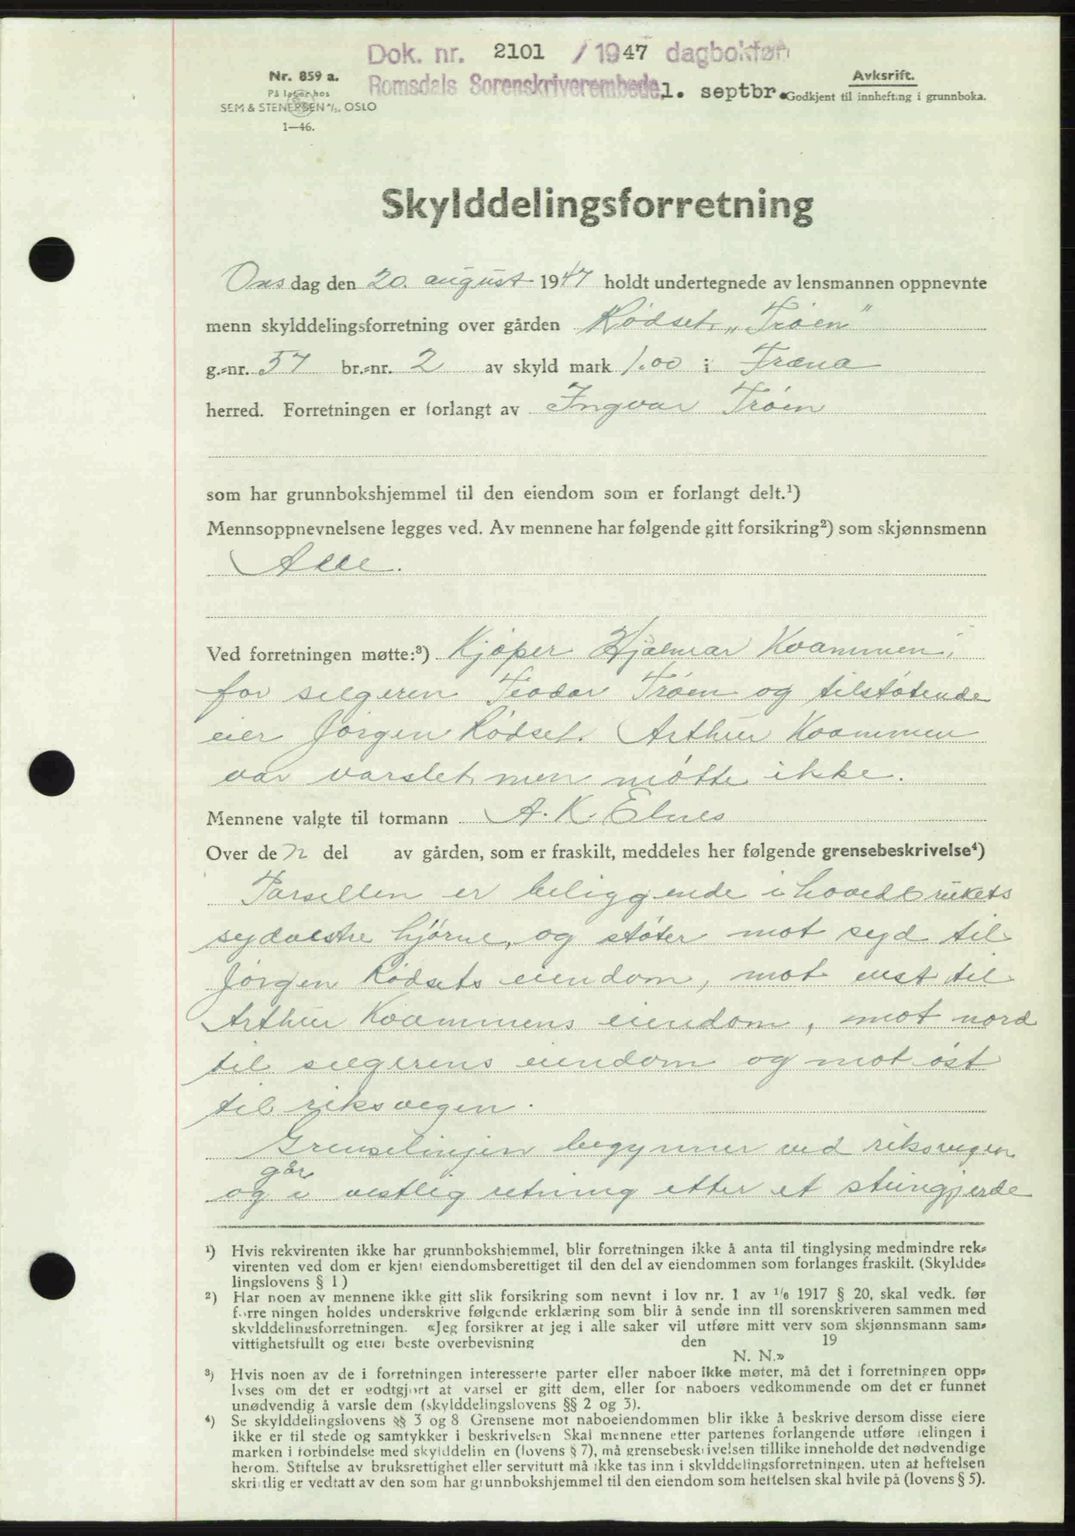 Dok. nr. 2101 / 1947 dagboken
Romsdals Sorenskriverembede 1. septbr.
Nr. 859 a.
På lager hos
SEM & STENERSEN A/S, OSLO
1—46.
Avskrift.
Godkjent til innhefting i grunnboka.
Skylddelingsforretning
Onsdag den 20. august 1947 holdt undertegnede av lensmannen oppnevnte
menn skylddelingsforretning over gården Rødset „Trøen"
g.-nr. 57 br.-nr. 2 av skyld mark 1.00 i Fræna
herred. Forretningen er forlangt av Ingvar Trøen
som har grunnbokshjemmel til den eiendom som er forlangt delt.¹)
Mennsoppnevnelsene legges ved. Av mennene har følgende gitt forsikring²) som skjønnsmenn
Alle.
Ved forretningen møtte:³) Kjøper Hjalmar Kvammen,
for selgeren Teodor Trøen og tilstøtende
eier Jørgen Rødset. Arthur Kvammen
var varslet, men møtte ikke.
Mennene valgte til formann A. K. Elnes
Over den del av gården, som er fraskilt, meddeles her følgende grensebeskrivelse⁴)
Parsellen er beliggende i hovedbrukets
sydvestre hjørne, og støter mot syd til
Jørgen Rødsets eiendom, mot vest til
Arthur Kvammens eiendom, mot nord
til selgerens eiendom og mot øst
til riksvegen.
Grenselinjen begynner ved riksvegen
og går i vestlig retning etter et steingjerde
¹) Hvis rekvirenten ikke har grunnbokshjemmel, blir forretningen ikke å anta til tinglysing medmindre rek-
virenten ved dom er kjent eiendomsberettiget til den del av eiendommen som forlanges fraskilt. (Skyldde-
lingslovens § 1)
²) Har noen av mennene ikke gitt slik forsikring som nevnt i lov nr. 1 av 1/6 1917 § 20, skal vedk. før
forretningen holdes underskrive følgende erklæring som blir å sende inn til sorenskriveren sammen med
skylddelingsforretningen. «Jeg forsikrer at jeg i alle saker vil utføre mitt verv som skjønnsmann sam-
vittighetsfullt og etter beste overbevisning den 19
N. N.»
³) Hvis noen av de i forretningen interesserte parter eller naboer ikke møter, må det i forretningen opp-
lyses om det er godtgjort at varsel er gitt dem, eller for naboers vedkommende om det er funnet
unødvendig å varsle dem (skylddelingslovens §§ 2 og 3).
⁴) Se skylddelingslovens §§ 3 og 8 Grensene mot naboeiendommen blir ikke å beskrive dersom disse eiere
ikke er til stede og samtykker i beskrivelsen Skal mennene etter partenes forlangende utføre delingen i
marken i forbindelse med skylddelingen (lovens § 7), må grensebeskrivelsen tillike inneholde det nødvendige
herom. Stiftelse av bruksrettighet eller servitutt må ikke tas inn i skylddelingsforretningen. uten at heftelsen
skriftlig er vedtatt av den som har grunnbokshjemmel til den eiendom som heftelsen skal hvile på (lovens § 5).